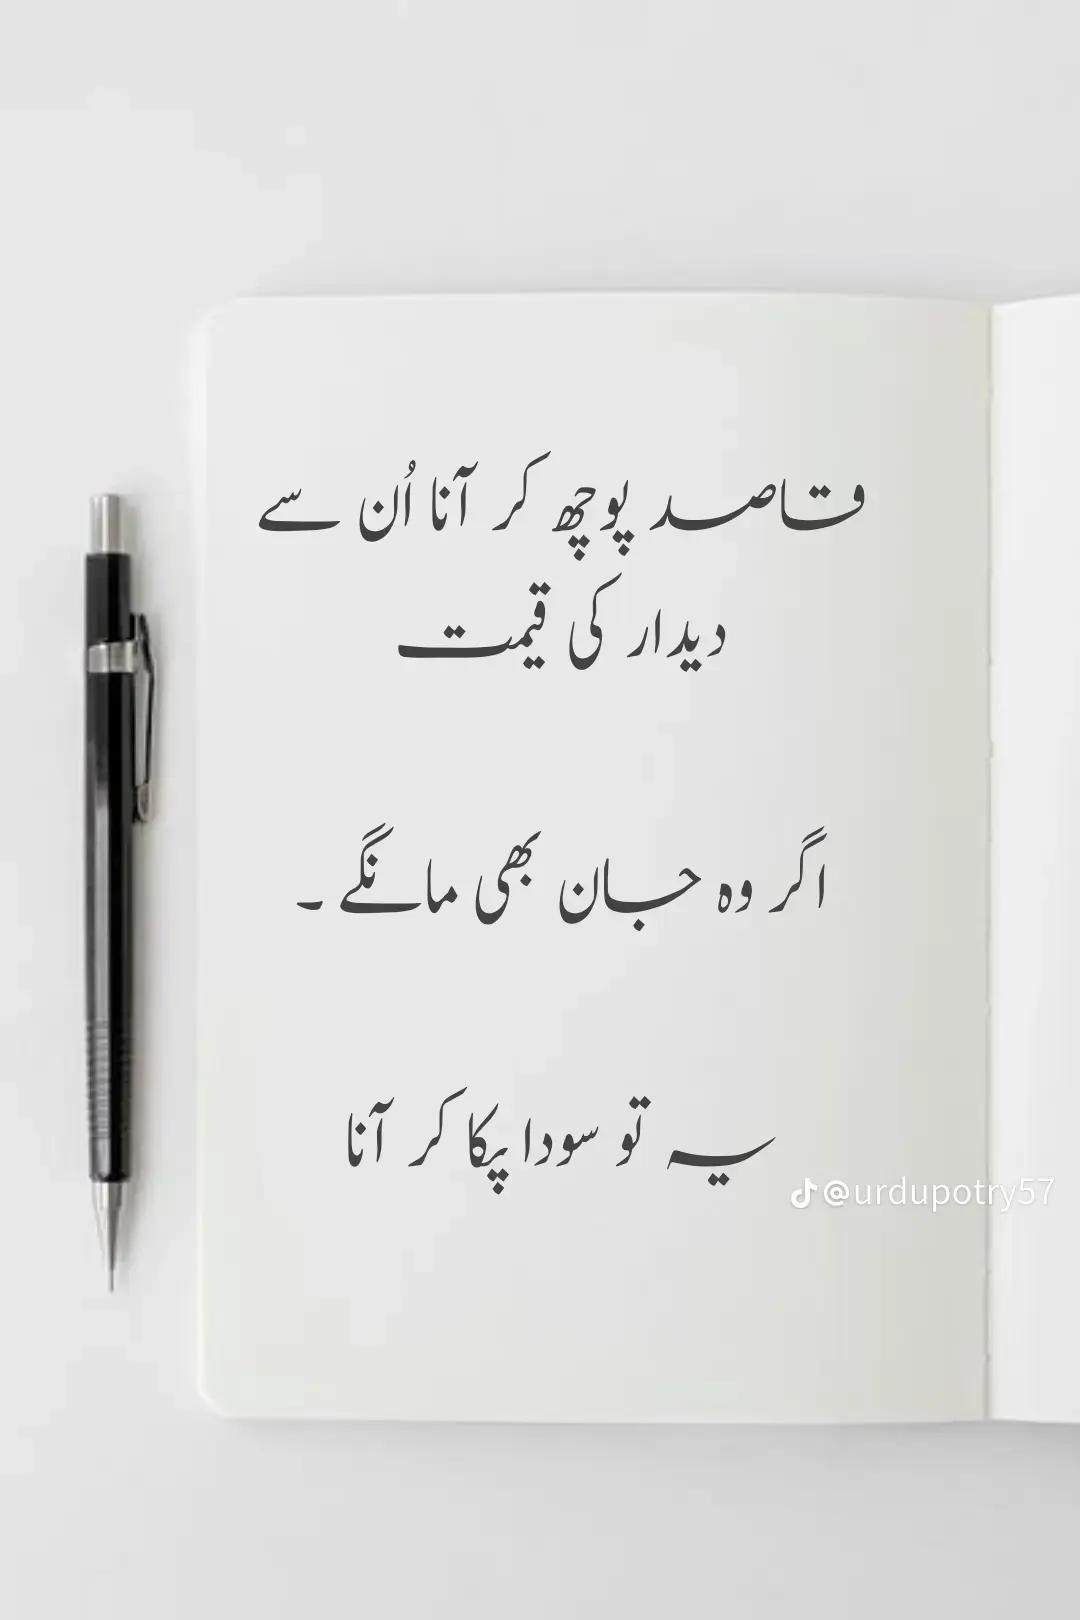 قاصد پوچھ کر آنا اُن سے
دیدار کی قیمت
اگر وہ جان بھی مانگے ۔
یہ تو سودا پکا کر آنا
@urdupotry57